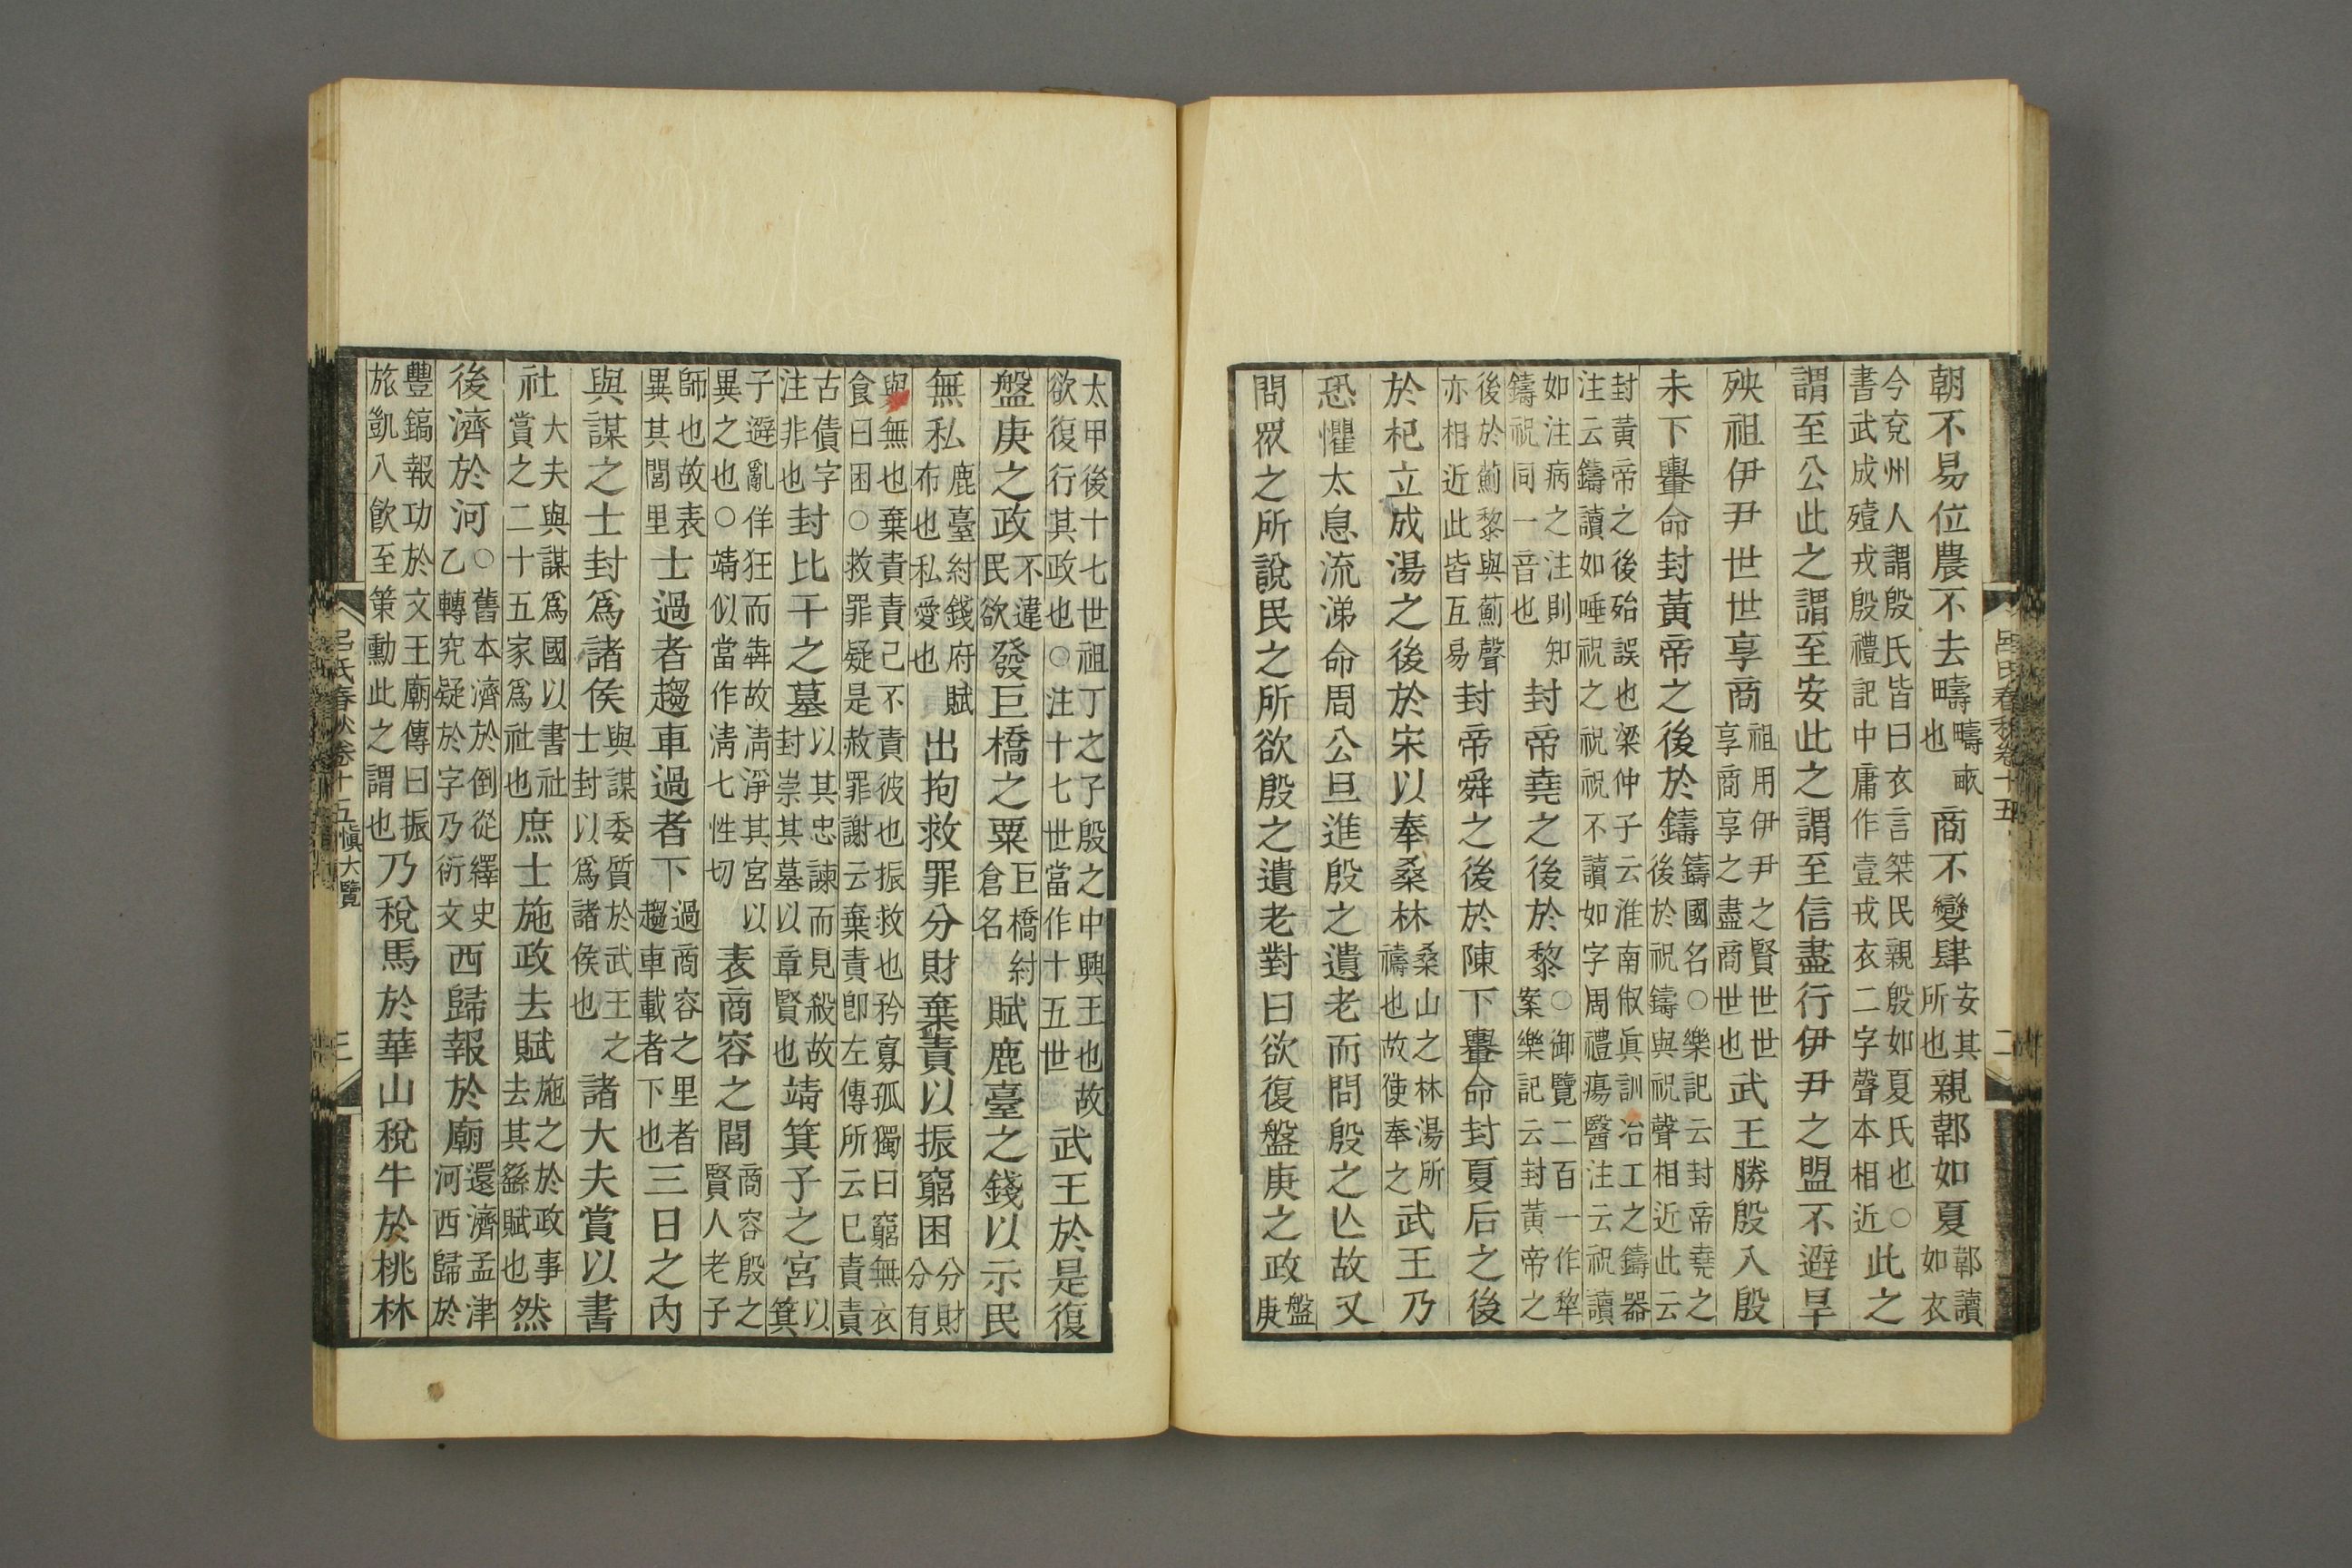 呂氏春秋卷十五
二
朝不易位農不去疇疇畝也商不變肆安其所也親郼如夏郼讀如衣
今兗州人謂殷氏皆曰衣言桀民親殷如夏氏也○書武成殪戎殷禮記中庸作壹戎衣二字聲本相近此之
謂至公此之謂至安此之謂至信盡行伊尹之盟不避旱
殃祖伊尹世世享商祖用伊尹之賢世世享商享之盡商世也武王勝殷入殷
未下轝命封黃帝之後於鑄鑄國名○樂記云封帝堯之後於祝鑄與祝聲相近此云
封黃帝之後殆誤也梁仲子云淮南俶眞訓冶工之鑄器注云鑄讀如唾祝之祝祝不讀如字周禮瘍醫注云祝讀
如注病之注則知鑄祝同一音也封帝堯之後於黎○御覽二百一作犂案樂記云封黃帝之
後於薊黎與薊聲亦相近此皆互易封帝舜之後於陳下轝命封夏后之後
於杞立成湯之後於宋以奉桑林桑山之林湯所禱也故使奉之武王乃
恐懼太息流涕命周公旦進殷之遺老而問殷之亾故又
問眾之所說民之所欲殷之遺老對曰欲復盤庚之政盤庚
太甲後十七世祖丁之子殷之中興王也故欲復行其政也○注十七世當作十五世武王於是復
盤庚之政不違民欲發巨橋之粟巨橋紂倉名賦鹿臺之錢以示民
無私鹿臺紂錢府賦布也私愛也出拘救罪分財棄責以振窮困分財分有
與無也棄責責己不責彼也振救也矜寡孤獨曰窮無衣食曰困○救罪疑是赦罪謝云棄責卽左傳所云已責責
古債字注非也封比干之墓以其忠諫而見殺故封崇其墓以章賢也靖箕子之宮以箕
子避亂佯狂而犇故清淨其宮以異之也○靖似當作清七性切表商容之閭商容殷之賢人老子
師也故表異其閭里士過者趨車過者下過商容之里者趨車載者下也三日之內
與謀之士封爲諸侯與謀委質於武王之士封以爲諸侯也諸大夫賞以書
社大夫與謀爲國以書社賞之二十五家爲社也庶士施政去賦施之於政事去其繇賦也然
後濟於河○舊本濟於倒從繹史乙轉究疑於字乃衍文西歸報於廟還濟孟津河西歸於
豐鎬報功於文王廟傳曰振旅凱入飮至策勳此之謂也乃稅馬於華山稅牛於桃林
呂氏春秋卷十五愼大覽
三